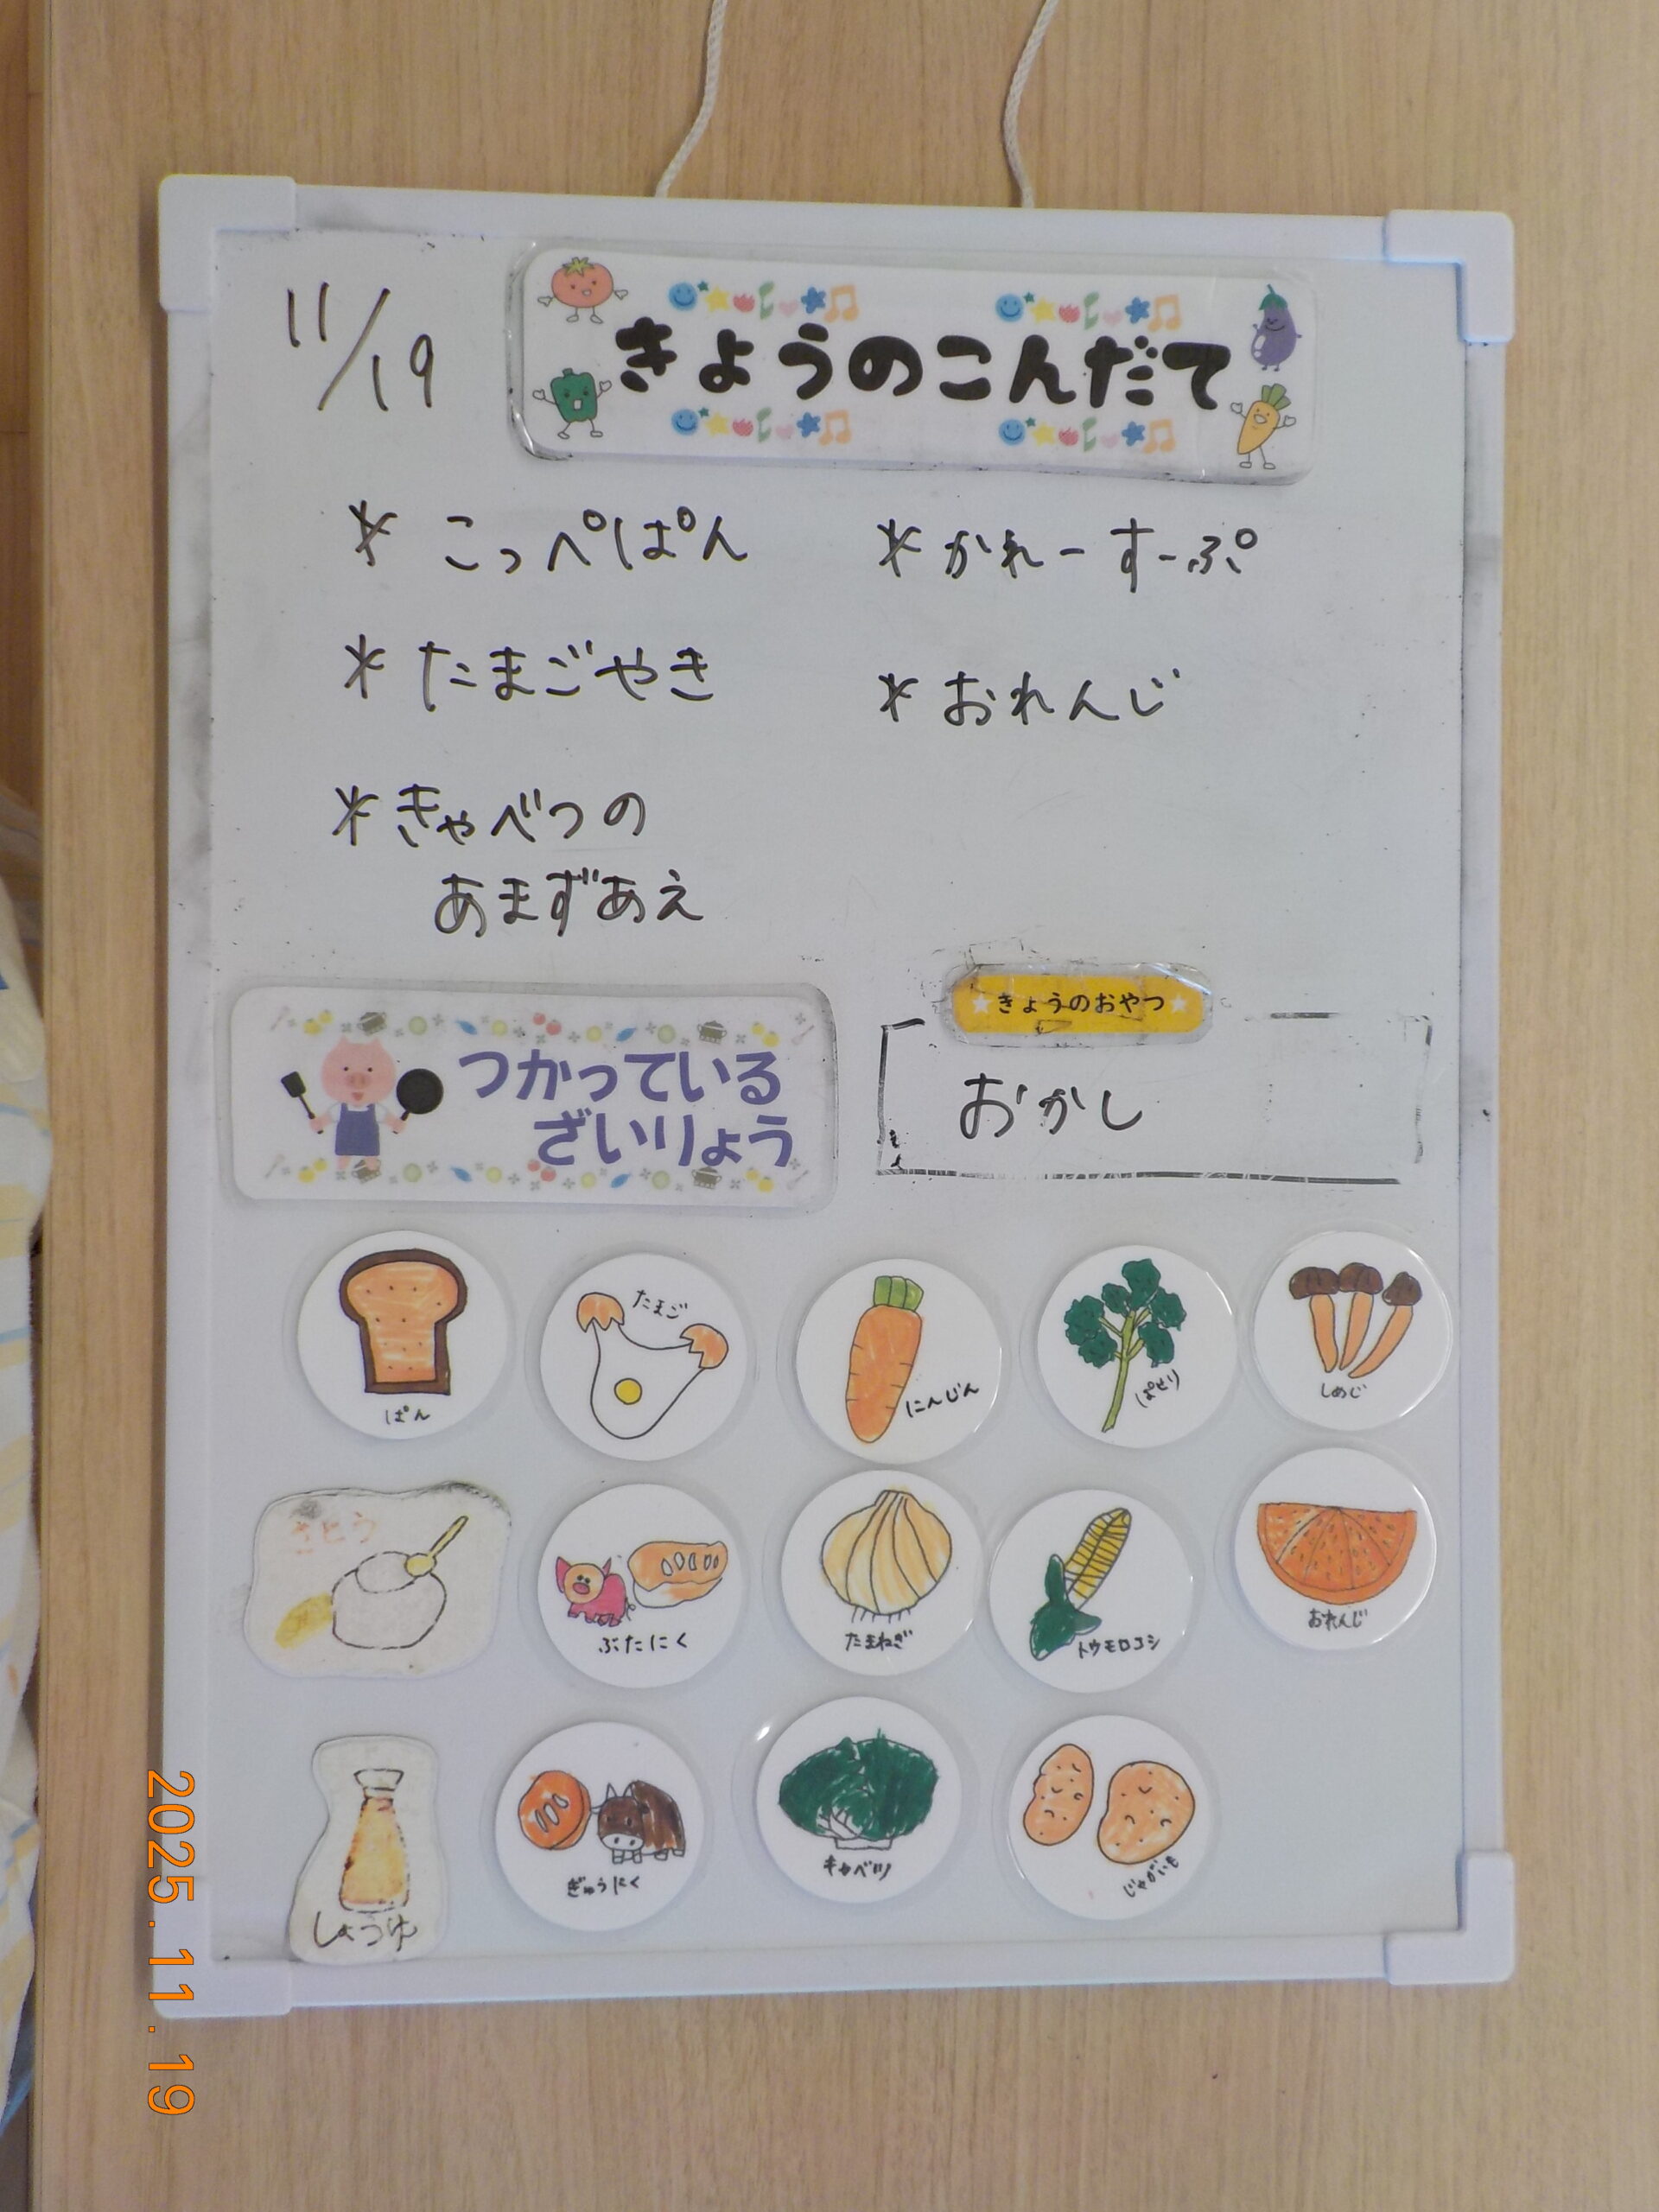 11/19
きょうのこんだて
* こっぺぱん
* たまごやき
* きゃべつの
あまずあえ
* かれーすーぷ
* おれんじ
つかっている
ざいりょう
きょうのおやつ
おかし
ぱん
たまご
にんじん
ぱせり
しめじ
さとう
ぶたにく
たまねぎ
トウモロコシ
おれんじ
しょうゆ
ぎゅうにく
キャベツ
じゃがいも
2025.11.19